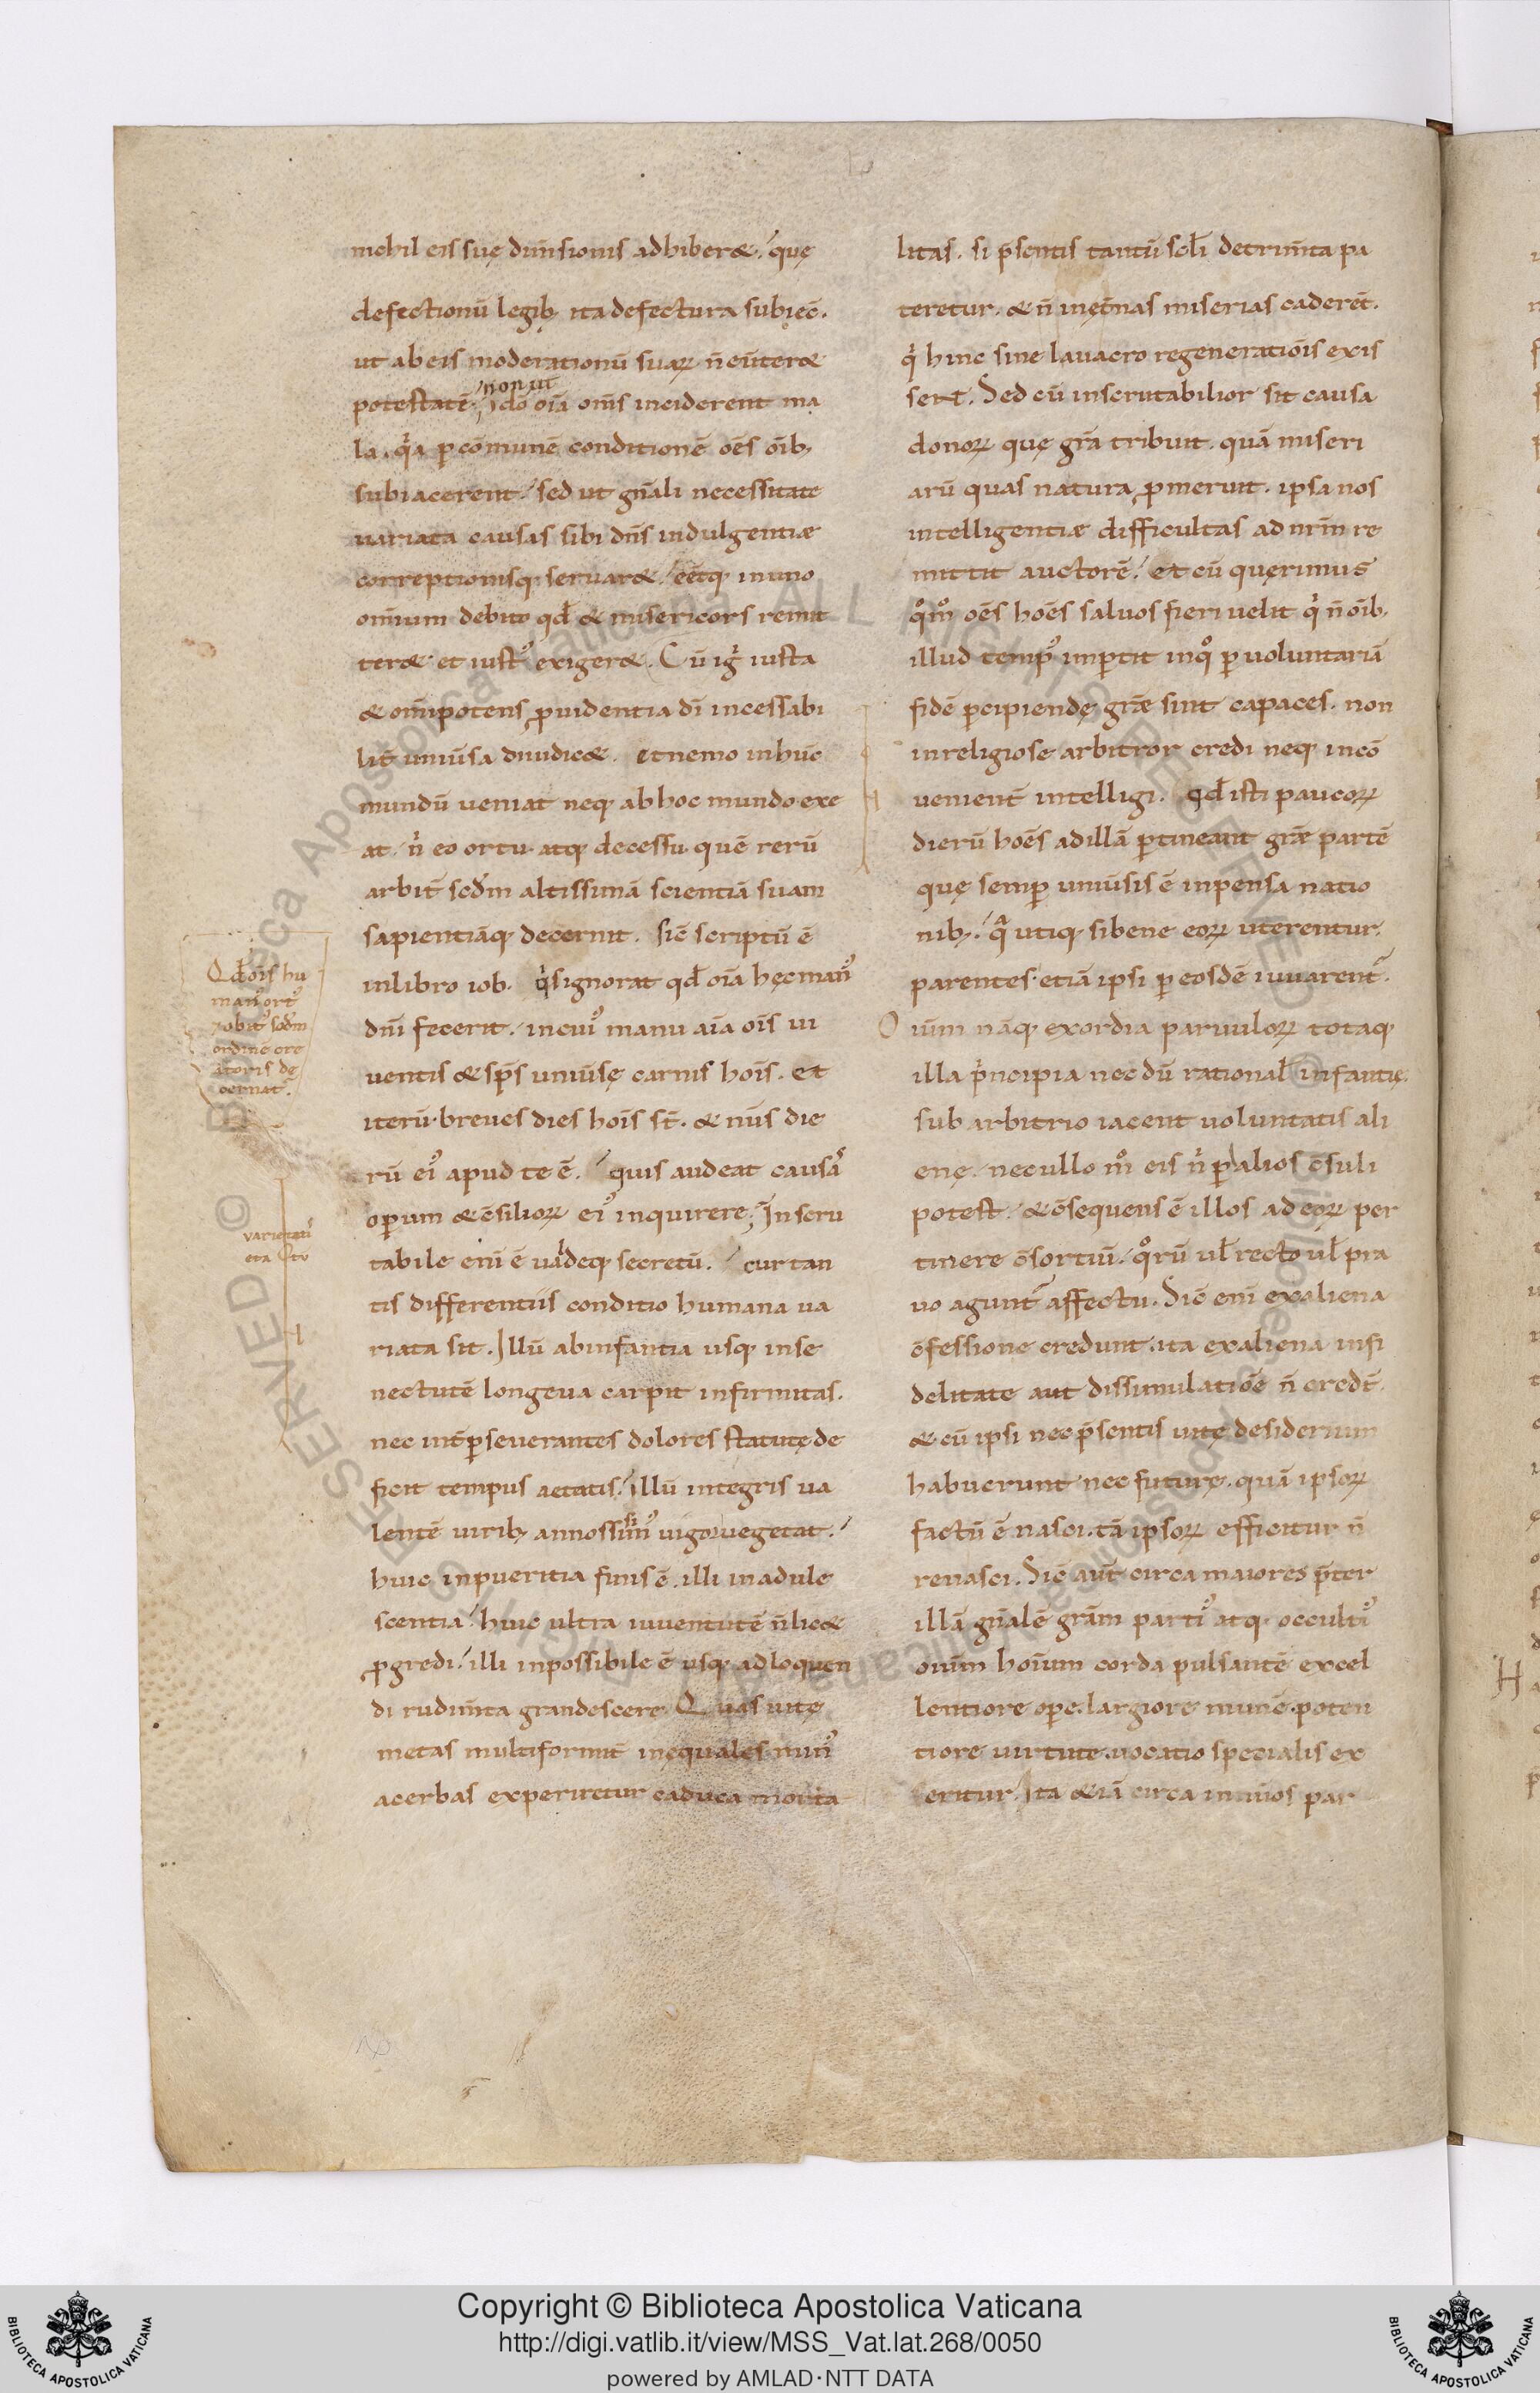 nichil eis suę dim̄sionis adhiberet. quę
defectionū legib; ita defectura subiec̄.
ut ab eis moderationū suaꝝ n̄ eūteret
potestatē. non ut
idō oīa om̄s inciderent ma
la. qͥa ꝑ cōmunē conditionē oēs oīb;
subiacerent. sed ut gn̄ali necessitate
uariata causas sibi dn̄s indulgentiæ
correptionisq; seruaret. eētq; in uno
omnium debito qd̄ et misericors remit
teret et iustꝰ exigeret. Cū igͥ iusta
et om̄ipotens ꝓuidentia dī incessabi
lit̄ uniūsa diiudicet. Et nemo in hūc
mundū ueniat neq; ab hoc mundo exe
at. nͥ eo ortu atq; decessu quē rerū
arbit̄ scd̄m altissimā scientiā suam
sapientiāq; decernit. Sic̄ scriptū ē
in libro iob. qͥs ignorat qd̄ oīa hęc manꝰ
dn̄i fecerit. in cuiꝰ manu aīa oīs ui
uentis et sp̄s uniūsę carnis hoīs. Et
iterū. breues dies hoīs st̄. et nūs die
rū eiꝰ apud te ē. Quis audeat causaͬ
oꝑum et c̄siliorꝝ eiꝰ inquirere; Inscru
tabile eni ē ualdeq; secretū. cur tan
tis differentiis conditio humana ua
riata sit. Illū ab infantia usq; in se
nectutē longeua carpit infirmitas.
nec int̄ ꝑseuerantes dolores statutę de
ficit tempus aetatis. illū integris ua
lentē uirib; annosissimꝰ uigor uegetat.
huic in pueritia finis ē. illi in adule
scentia. huic ultra iuuentutē n̄ licet
ꝓgredi. illi inpossibile ē usq; ad loquen
di rudim̄ta grandescere. Quas uitę
metas multiformit̄ inęquales minꝰ
acerbas experiretur caduca morta
Qd̄ oīs hu
manꝰ ortꝰ
7 obitꝰ scd̄m
ordinē cre
atoris de
cernat̄.
litas. si p̄sentis tantū scl̄i detrim̄ta pa
teretur. et n̄ in ęt̄nas miserias caderēt.
qͥ hinc sine lauacro regenerationīs exis
sent. Sed cū inscrutabilior sit causa
donoꝝ quę gr̄a tribuit. quā miseri
arū quas natura ꝓmeruit. ipsa nos
intelligentiæ difficultas ad nr̄m re
mittit auctorē. et cū querimus
qͦmͦ oēs hoēs saluos fieri uelit qͥ n̄ oīb;
illud tempꝰ inꝑtit in qͦ ꝑ uoluntariā
fidē ꝑcipiendę gr̄æ sint capaces. non
inreligiose arbitror credi neq; incō
uenient̄ intelligi. qd̄ isti paucorꝝ
dierū hoēs ad illā ꝑtineant gr̄æ partē
quę semꝑ uniūsis ē inpensa natio
nib;. qͣ utiq; si bene eoꝝ uterentur
parentes. etiā ipsi ꝑ eosdē iuuarent̄.
Om̄m nāq; exordia paruulorꝝ totaq;
illa pͥncipia necdū rational̄ infantię
sub arbitrio iacent uoluntatis ali
enę. nec ullo mͦ eis nͥ ꝑ alios c̄suli
potest. et c̄sequens ē illos ad eoꝝ per
tinere c̄sortiū. qͦrū ul̄ recto ul̄ pra
uo agunt̄ affectu. Sic̄ eni ex aliena
c̄fessione credunt. ita ex aliena infi
delitate aut dissimulatiōe n̄ credt̄.
et cū ipsi nec p̄sentis uitę desiderium
habuerunt nec futurę. quā ipsorꝝ
factū ē nasci. tā ipsorꝝ efficitur n̄
renasci. Sic̄ aūt circa maiores p̄ter
illā gn̄alē gr̄am partiꝰ atq; occultiꝰ
om̄m hoīum corda pulsantē excel
lentiore oꝑe. largiore mun̄e. poten
tiore uirtute. uocatio specialis ex
eritur. Ita etiā circa innūos par